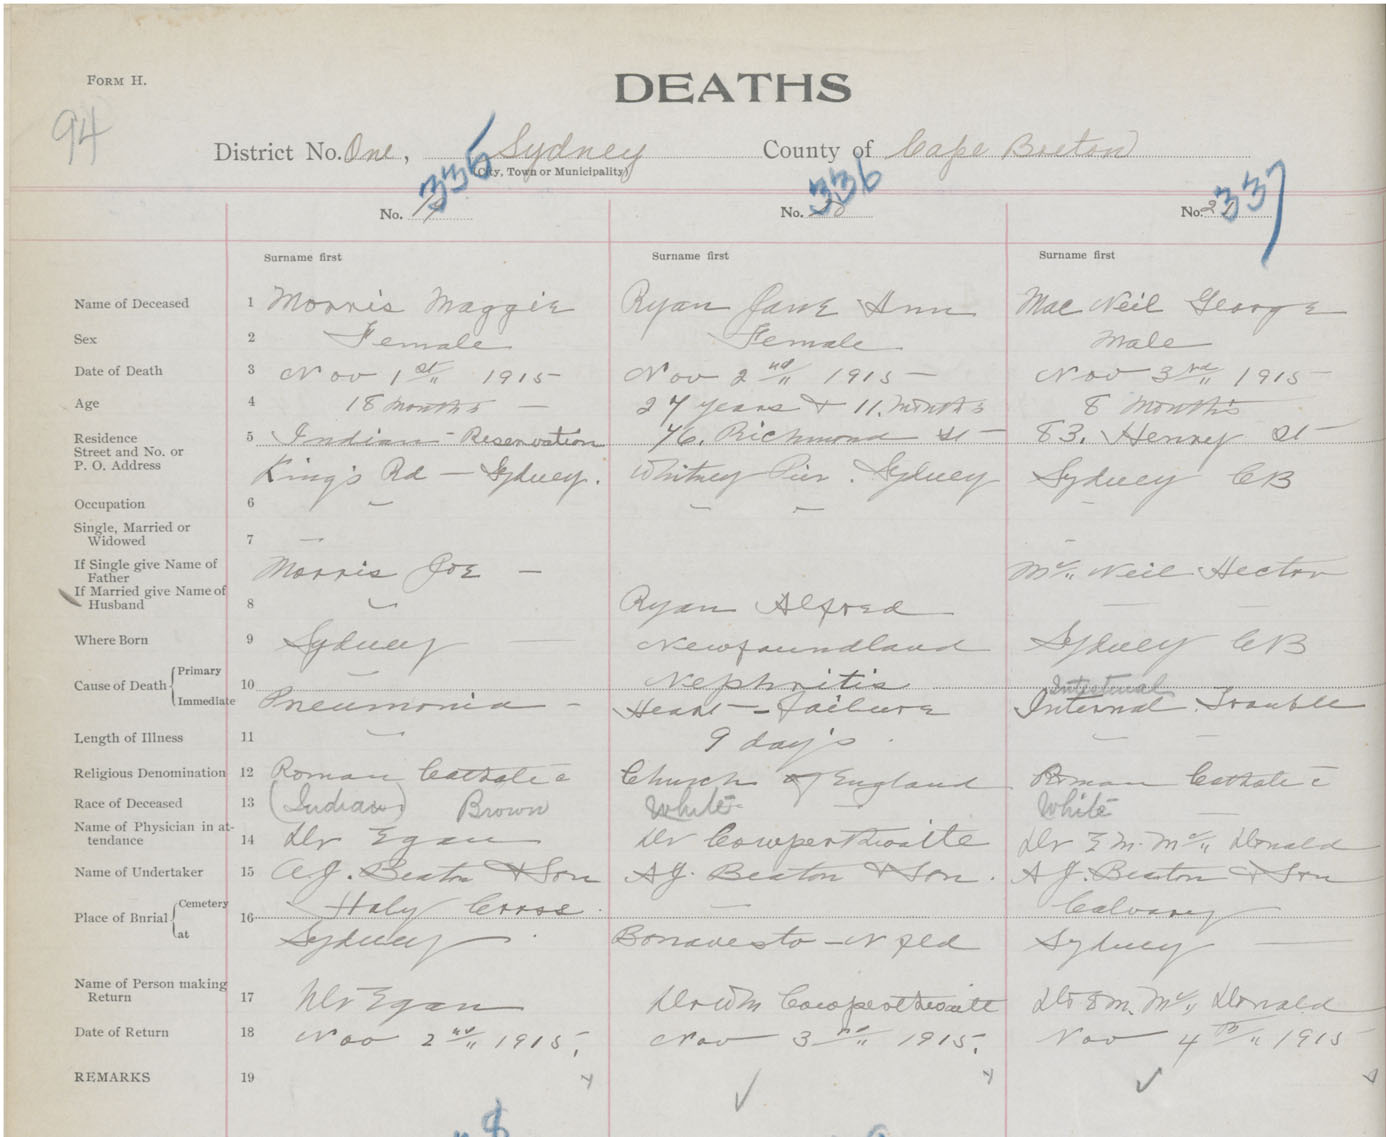 FORM H.
DEATHS
94
District No. One, Sydney County of Cape Breton
(City, Town or Municipality)
335 336 337
No. No. No.
Surname first Surname first Surname first
Name of Deceased 1 Morris Maggie Ryan Jane Ann Mac Neil George
Sex 2 Female Female Male
Date of Death 3 Nov 1st 1915 Nov 2nd 1915 Nov 3rd 1915
Age 4 18 months 27 years & 11 months 8 months
Residence 5 Indian Reservation 76. Richmond St 83. Henry St
Street and No. or
P. O. Address King's Rd Sydney. Whitney Pier. Sydney Sydney CB
Occupation 6
Single, Married or
Widowed 7
If Single give Name of
Father Morris Joe Mc Neil Hector
If Married give Name of
Husband 8 Ryan Alfred
Where Born 9 Sydney Newfoundland Sydney CB
Cause of Death Primary 10 Nephritis Intestinal
Immediate Pneumonia Heart Failure Internal Trouble
Length of Illness 11 9 day's
Religious Denomination 12 Roman Catholic Church of England Roman Catholic
Race of Deceased 13 (Indian) Brown White White
Name of Physician in at-
tendance 14 Dr Egan Dr Cowperthwaite Dr E M. Mc Donald
Name of Undertaker 15 A J. Beaton & Son A J. Beaton & Son. A J. Beaton & Son
Place of Burial Cemetery 16 Holy Cross. Calvary
at Sydney Bonavesto Nfld Sydney
Name of Person making
Return 17 Dr Egan Dr Wm Cowperthwaite Dr E M. Mc Donald
Date of Return 18 Nov 2nd 1915. Nov 3rd 1915. Nov 4th 1915
REMARKS 19